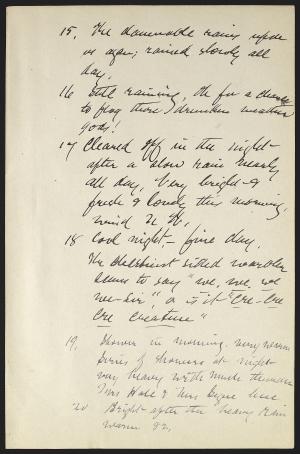 15, The damnable rains upon
us again; rained slowly all
day.
16 Still raining, Oh for a chance
to flog those drunken weather
gods!
17 Cleared off in the night
after a slow rain nearly
all day, Very bright &
fresh & lovely this morning,
wind N.W.
18 Cool night – fine day.
The
seems to say "we, we, we
we-sir", or is it "Cre-Cre
Cre Creature"
19. Shower in morning. very warm
Series of showers at night
very heavy with much thunder
Mrs Hale & Mrs here
20 Bright after the heavy rain
warm 82.